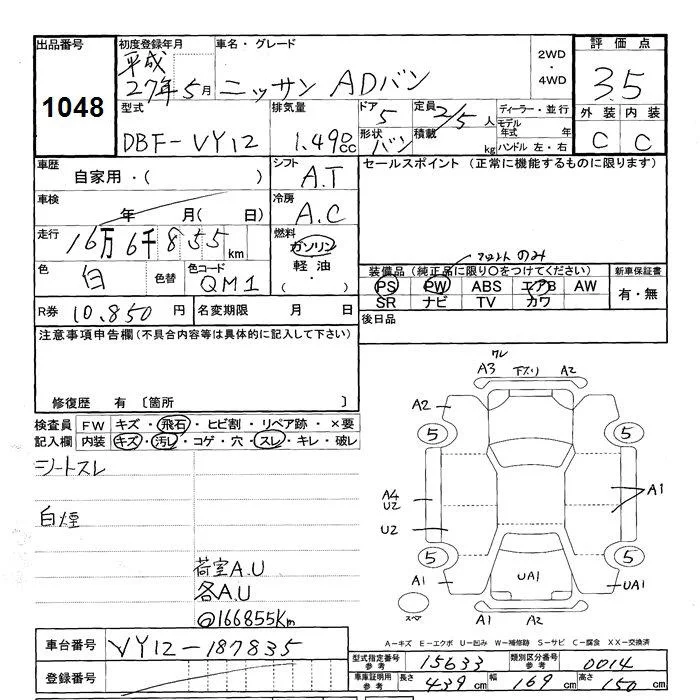 出品番号
1048
初度登録年月
平成
27年5月
車名・グレード
ニッサン ADバン
2WD
・
4WD
評価点
3.5
外装 内装
C C
型式
DBF-VY12
排気量
1.490cc
ドア
5
形状
バン
定員
2/5人
積載
kg
ディーラー・並行
モデル
年式 年
ハンドル 左・右
車歴
自家用・( )
シフト
A.T
セールスポイント (正常に機能するものに限ります)
車検
年 月( 日)
冷房
A.C
走行
16万6千855km
燃料
ガソリン
軽油
・( )
色
白
色替
色コード
QM1
フロントのみ
装備品(純正品に限り○をつけてください)
PS PW ABS エアB AW
SR ナビ TV カワ
新車保証書
有・無
R券 10.850円
名変期限 月 日
後日品
注意事項申告欄(不具合内容等は具体的に記入して下さい)
修復歴 有 〔箇所 〕
検査員
記入欄
FW キズ・飛石・ヒビ割・リペア跡・×要
内装 キズ・汚レ・コゲ・穴・スレ・キレ・破レ
シートスレ
白煙
荷室A.U
各A.U
@166855Km
ワレ
A3 下ズリ A2
A2
5 5
A4
U2
A1
U2
5 5
A1 UA1 UA1
スペア
A1 A2
A-キズ E-エクボ U-凹み W-補修跡 S-サビ C-腐食 XX-交換済
車台番号 VY12-187835
登録番号
型式指定番号
参考
15633
類別区分番号
参考
0014
車庫証明用
参考
長さ 439cm 幅 169cm 高さ 150cm